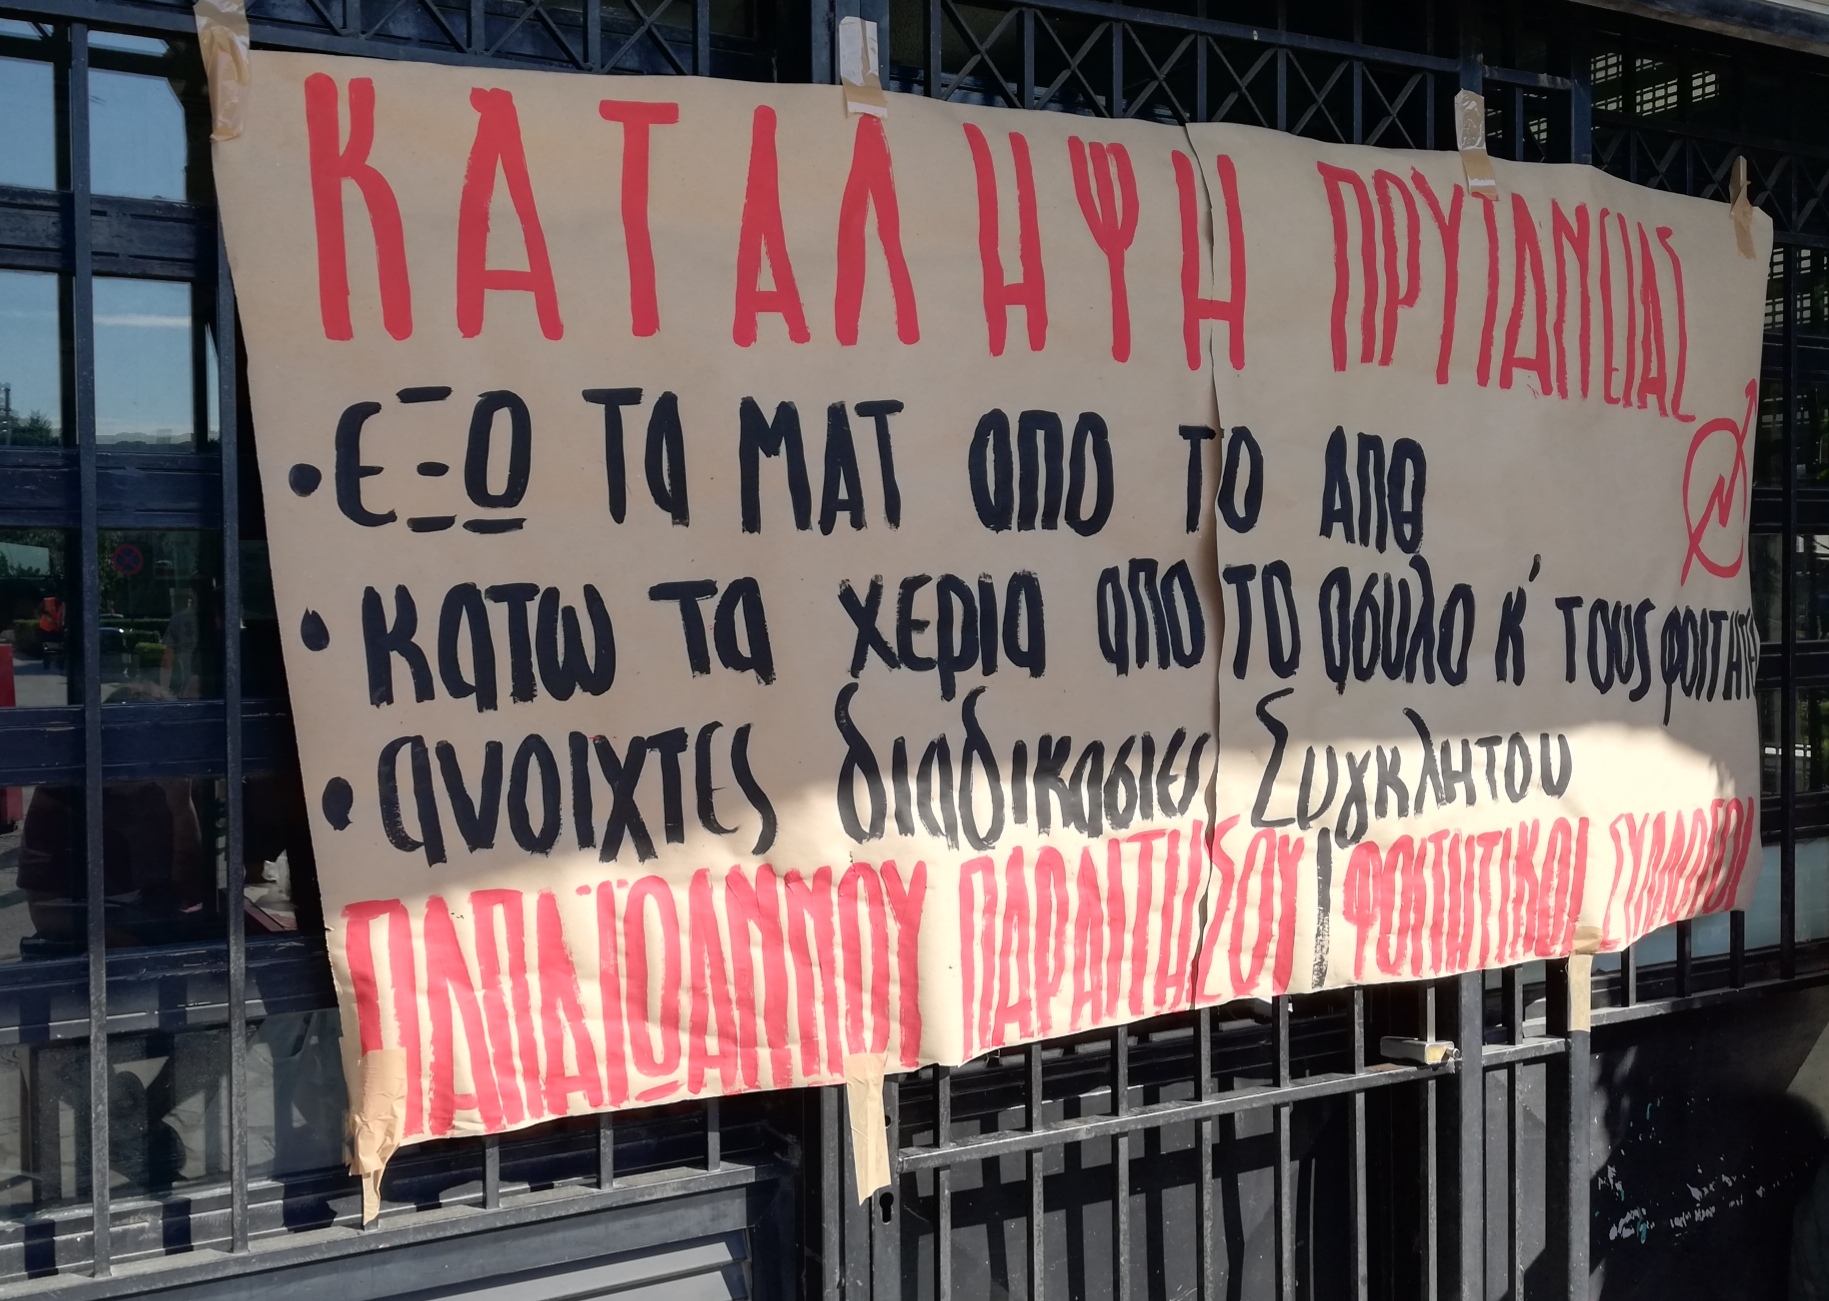 ΚΑΤΑΛΗΨΗ ΠΡΥΤΑΝΕΙΑΣ
• ΕΞΩ ΤΑ ΜΑΤ απο ΤΟ ΑΠΘ
• κατω τα χερια απο το ασυλο κ' τους φοιτητές
• ανοιχτες διαδικασιες Συγκλητου
ΠΑΠΑΪΩΑΝΝΟΥ ΠΑΡΑΙΤΗΣΟΥ / ΦΟΙΤΗΤΙΚΟΙ ΣΥΛΛΟΓΟΙ